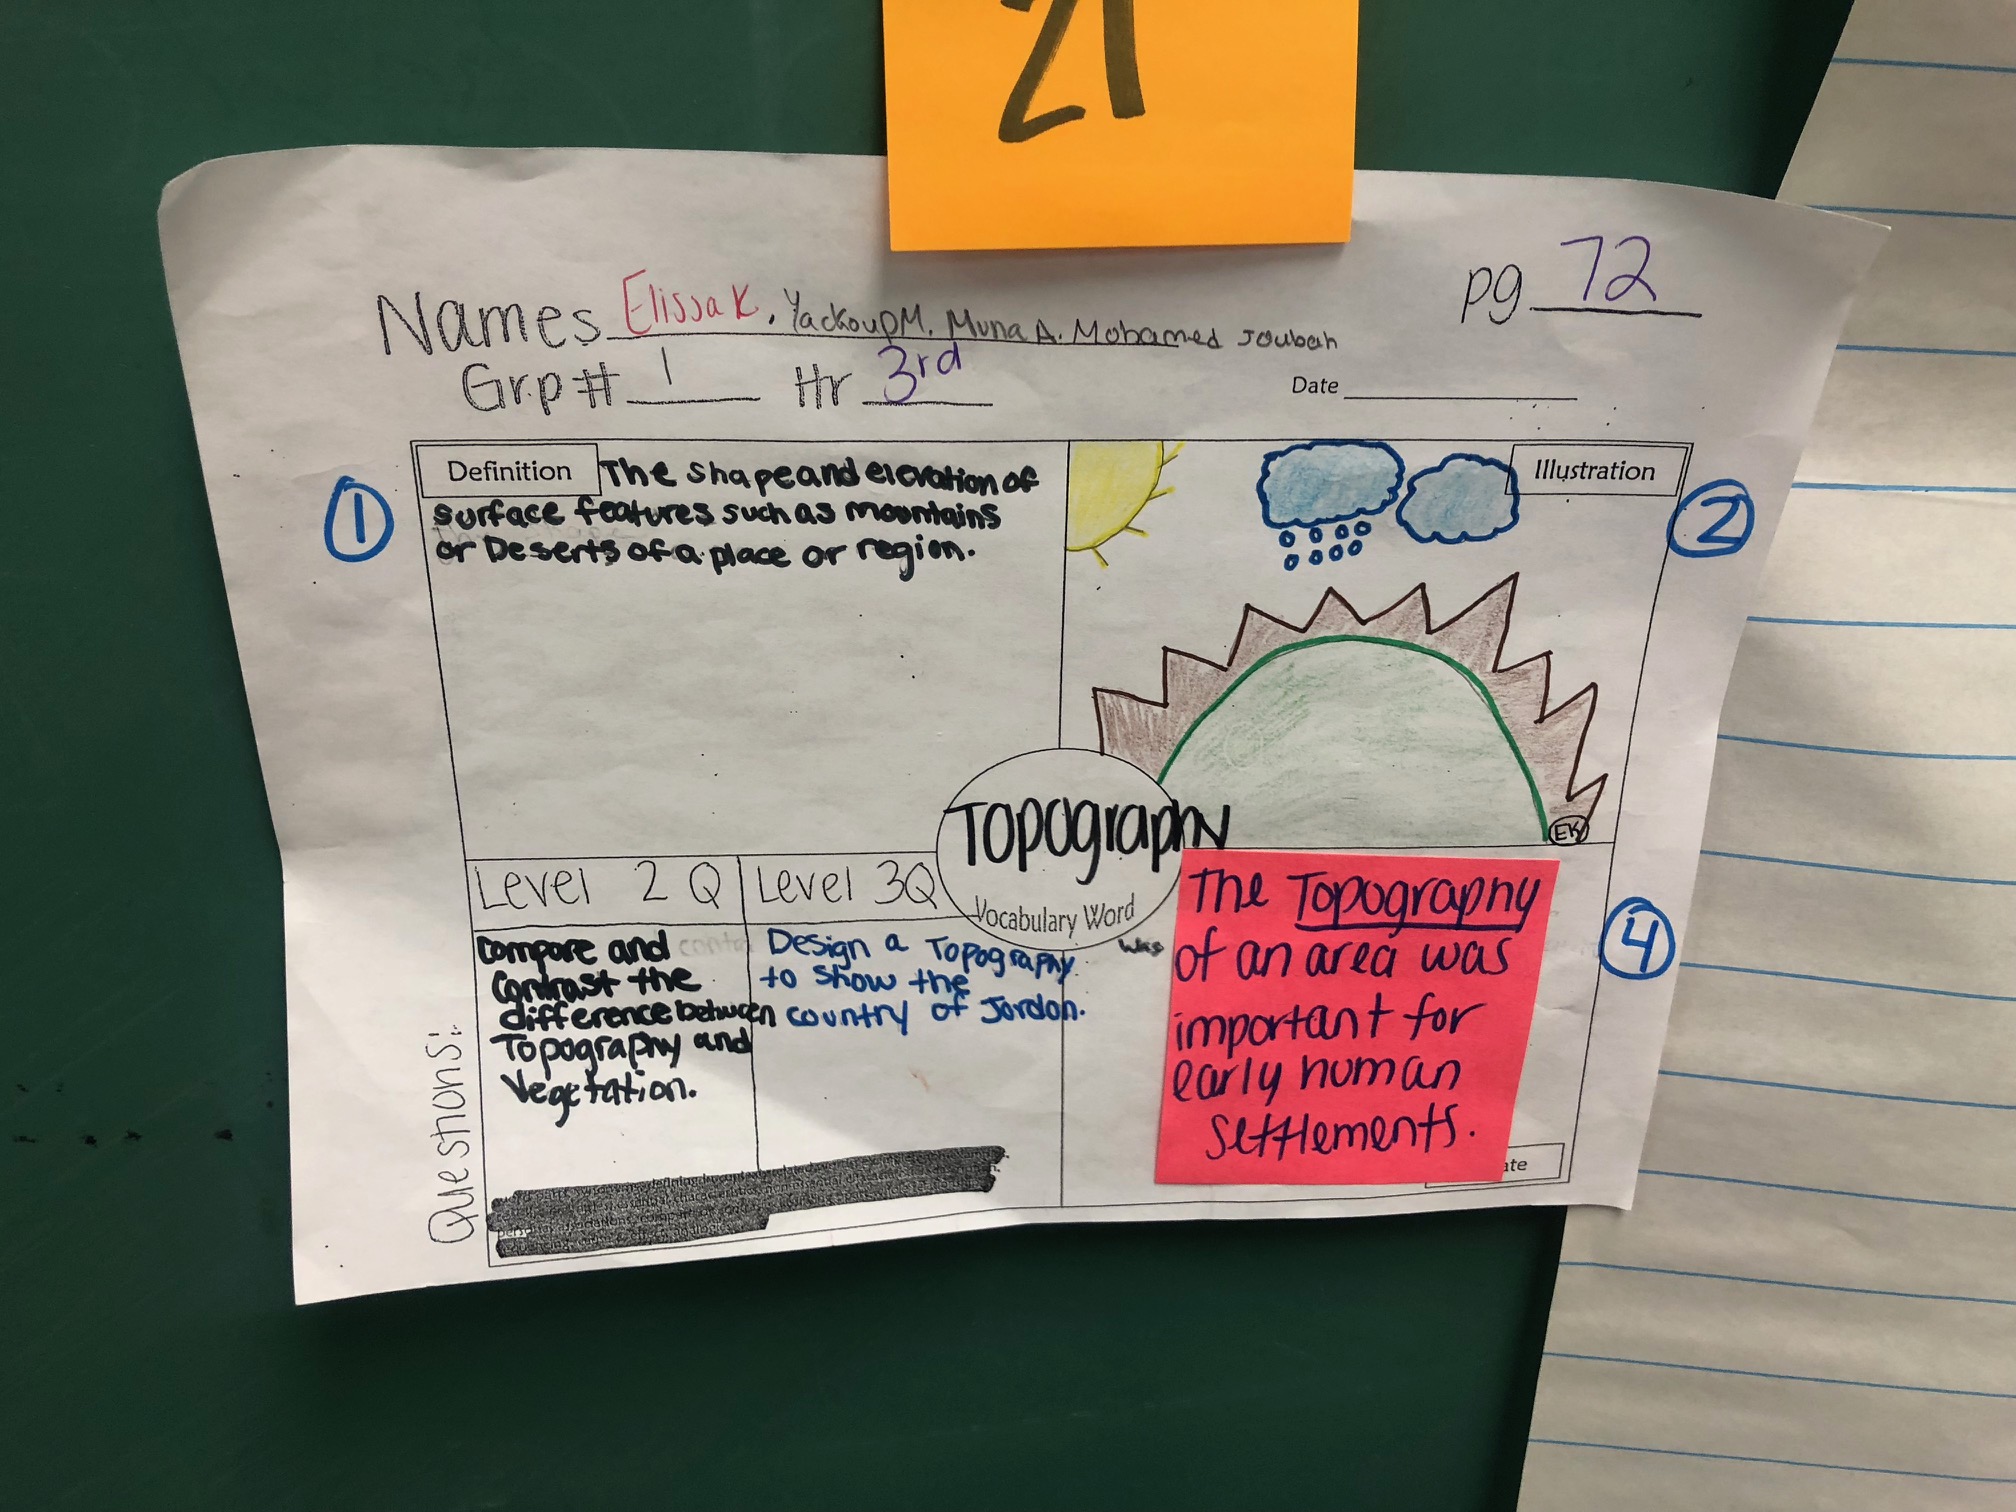 21
pg 72
Names Elissa K, Yackoup M, Muna A. Mohamed Joubah
Grp # 1 Hr 3rd
Date
1
Definition The shape and elevation of
surface features such as mountains
or Deserts of a place or region.
Illustration
2
EK
Topography
Vocabulary Word
Questions:
Level 2 Q
Compare and
Contrast the
difference between
Topography and
Vegetation.
Level 3Q
Design a Topography
to show the
country of Jordon.
was
The Topography
of an area was
important for
early human
settlements.
4